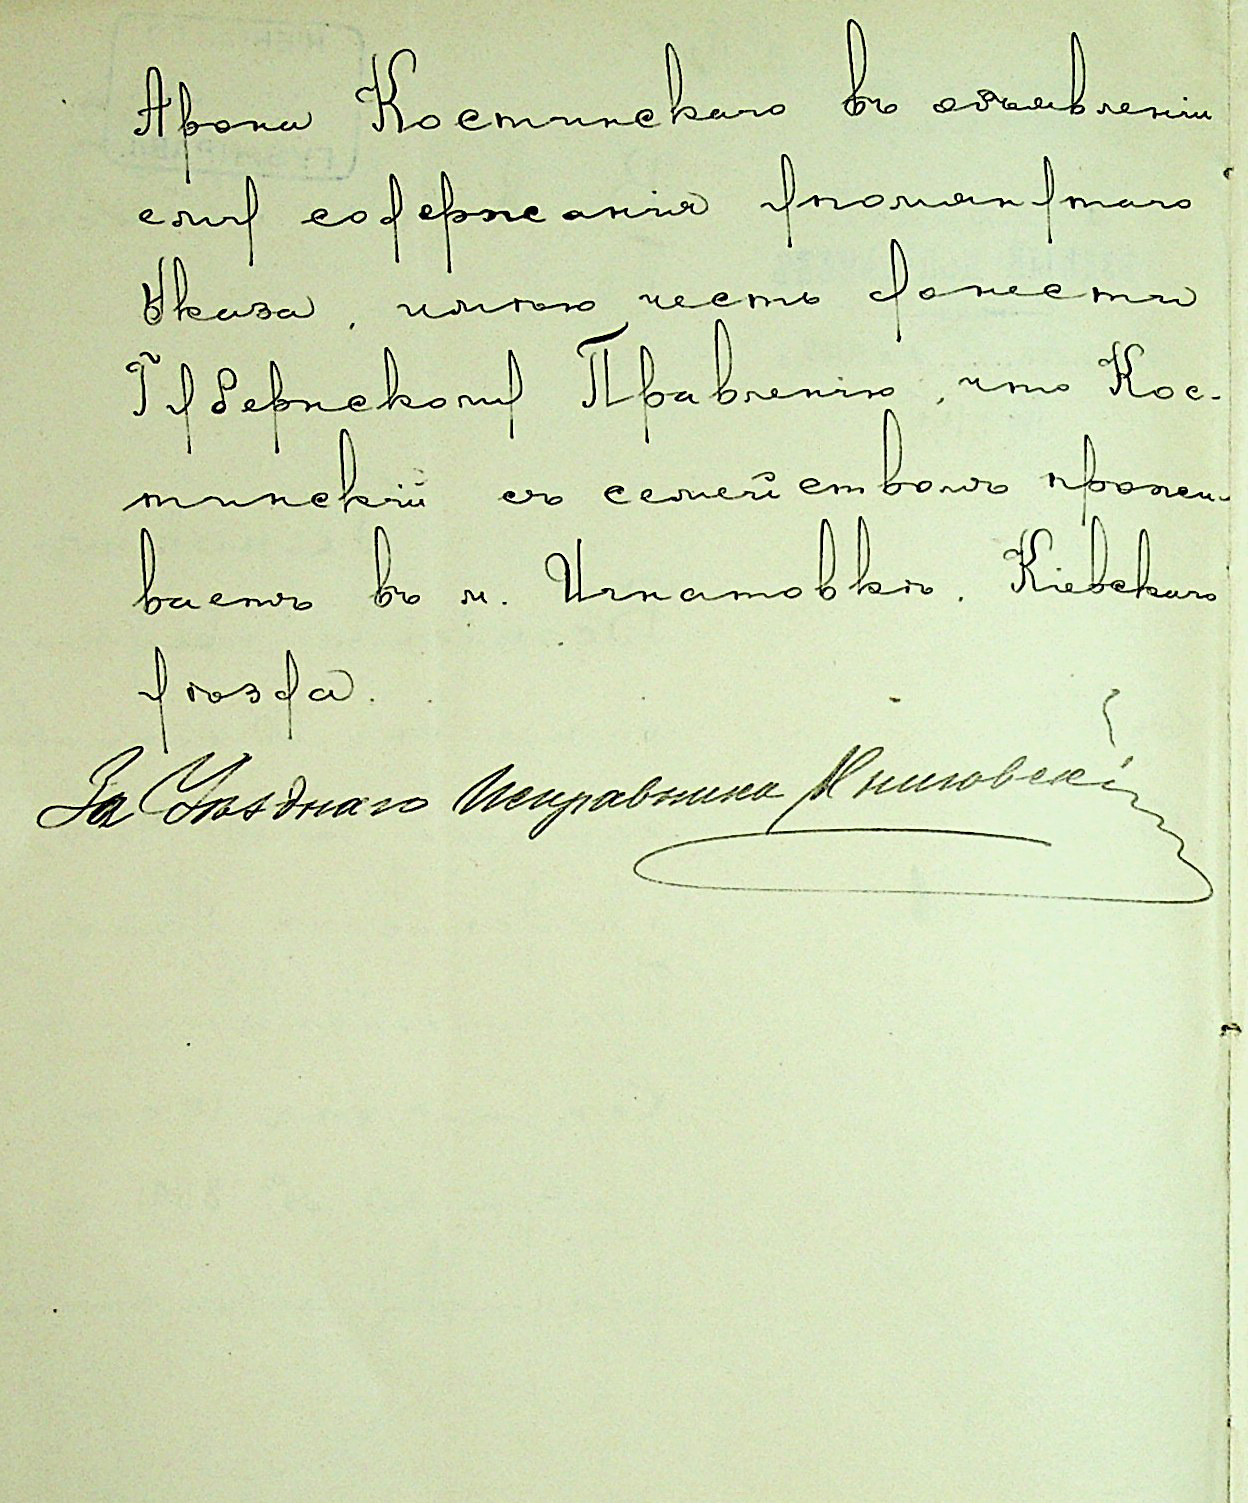 Арона Костинскаго въ объявленіи
ему содержанія упомянутаго
Указа, имѣю честь донести
Губернскому Правленію, что Кос-
тинскій съ семействомъ прожи-
ваетъ въ м. Игнатовкѣ, Кіевскаго
уѣзда.
За Уѣзднаго Исправника